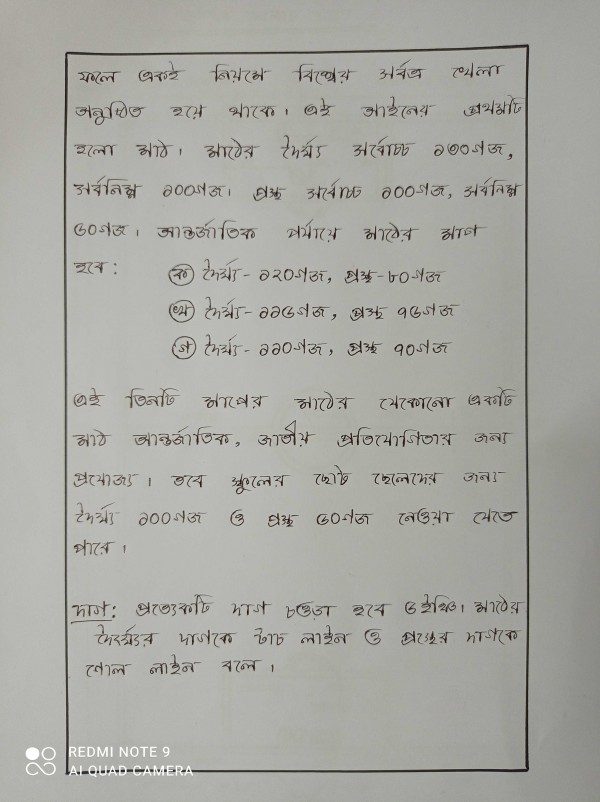 ফলে একই নিয়মে বিশ্বের সর্বত্র খেলা
অনুষ্ঠিত হয়ে থাকে। এই আইনের প্রথমটি
হলো মাঠ। মাঠের দৈর্ঘ্য সর্বোচ্চ ১৩০গজ,
সর্বনিম্ন ১০০গজ। প্রস্থ সর্বোচ্চ ১০০গজ, সর্বনিম্ন
৫০গজ। আন্তর্জাতিক পর্যায়ে মাঠের মাপ
হবে:
ক দৈর্ঘ্য- ১২০গজ, প্রস্থ-৮০গজ
খ দৈর্ঘ্য- ১১৫গজ, প্রস্থ ৭৫গজ
গ দৈর্ঘ্য- ১১০গজ, প্রস্থ ৭০গজ
এই তিনটি মাপের মাঠের যেকোনো একটি
মাঠ আন্তর্জাতিক, জাতীয় প্রতিযোগিতার জন্য
প্রযোজ্য। তবে স্কুলের ছোট ছেলেদের জন্য
দৈর্ঘ্য ১০০গজ ও প্রস্থ ৫০গজ নেওয়া যেতে
পারে।
দাগ: প্রত্যেকটি দাগ চওড়া হবে ৫ইঞ্চি। মাঠের
দৈর্ঘ্যের দাগকে টাচ লাইন ও প্রস্থের দাগকে
গোল লাইন বলে।
REDMI NOTE 9
AI QUAD CAMERA